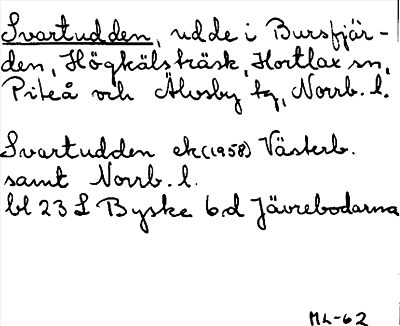 Svartudden, udde i Bursfjär-
den, Högkälsträsk, Hortlax sn,
Piteå och Älvsby tg, Norrb. l.
Svartudden ek (1958) Västerb.
samt Norrb. l.
bl 23 L Byske 6 d Jävrebodarna
ML-62